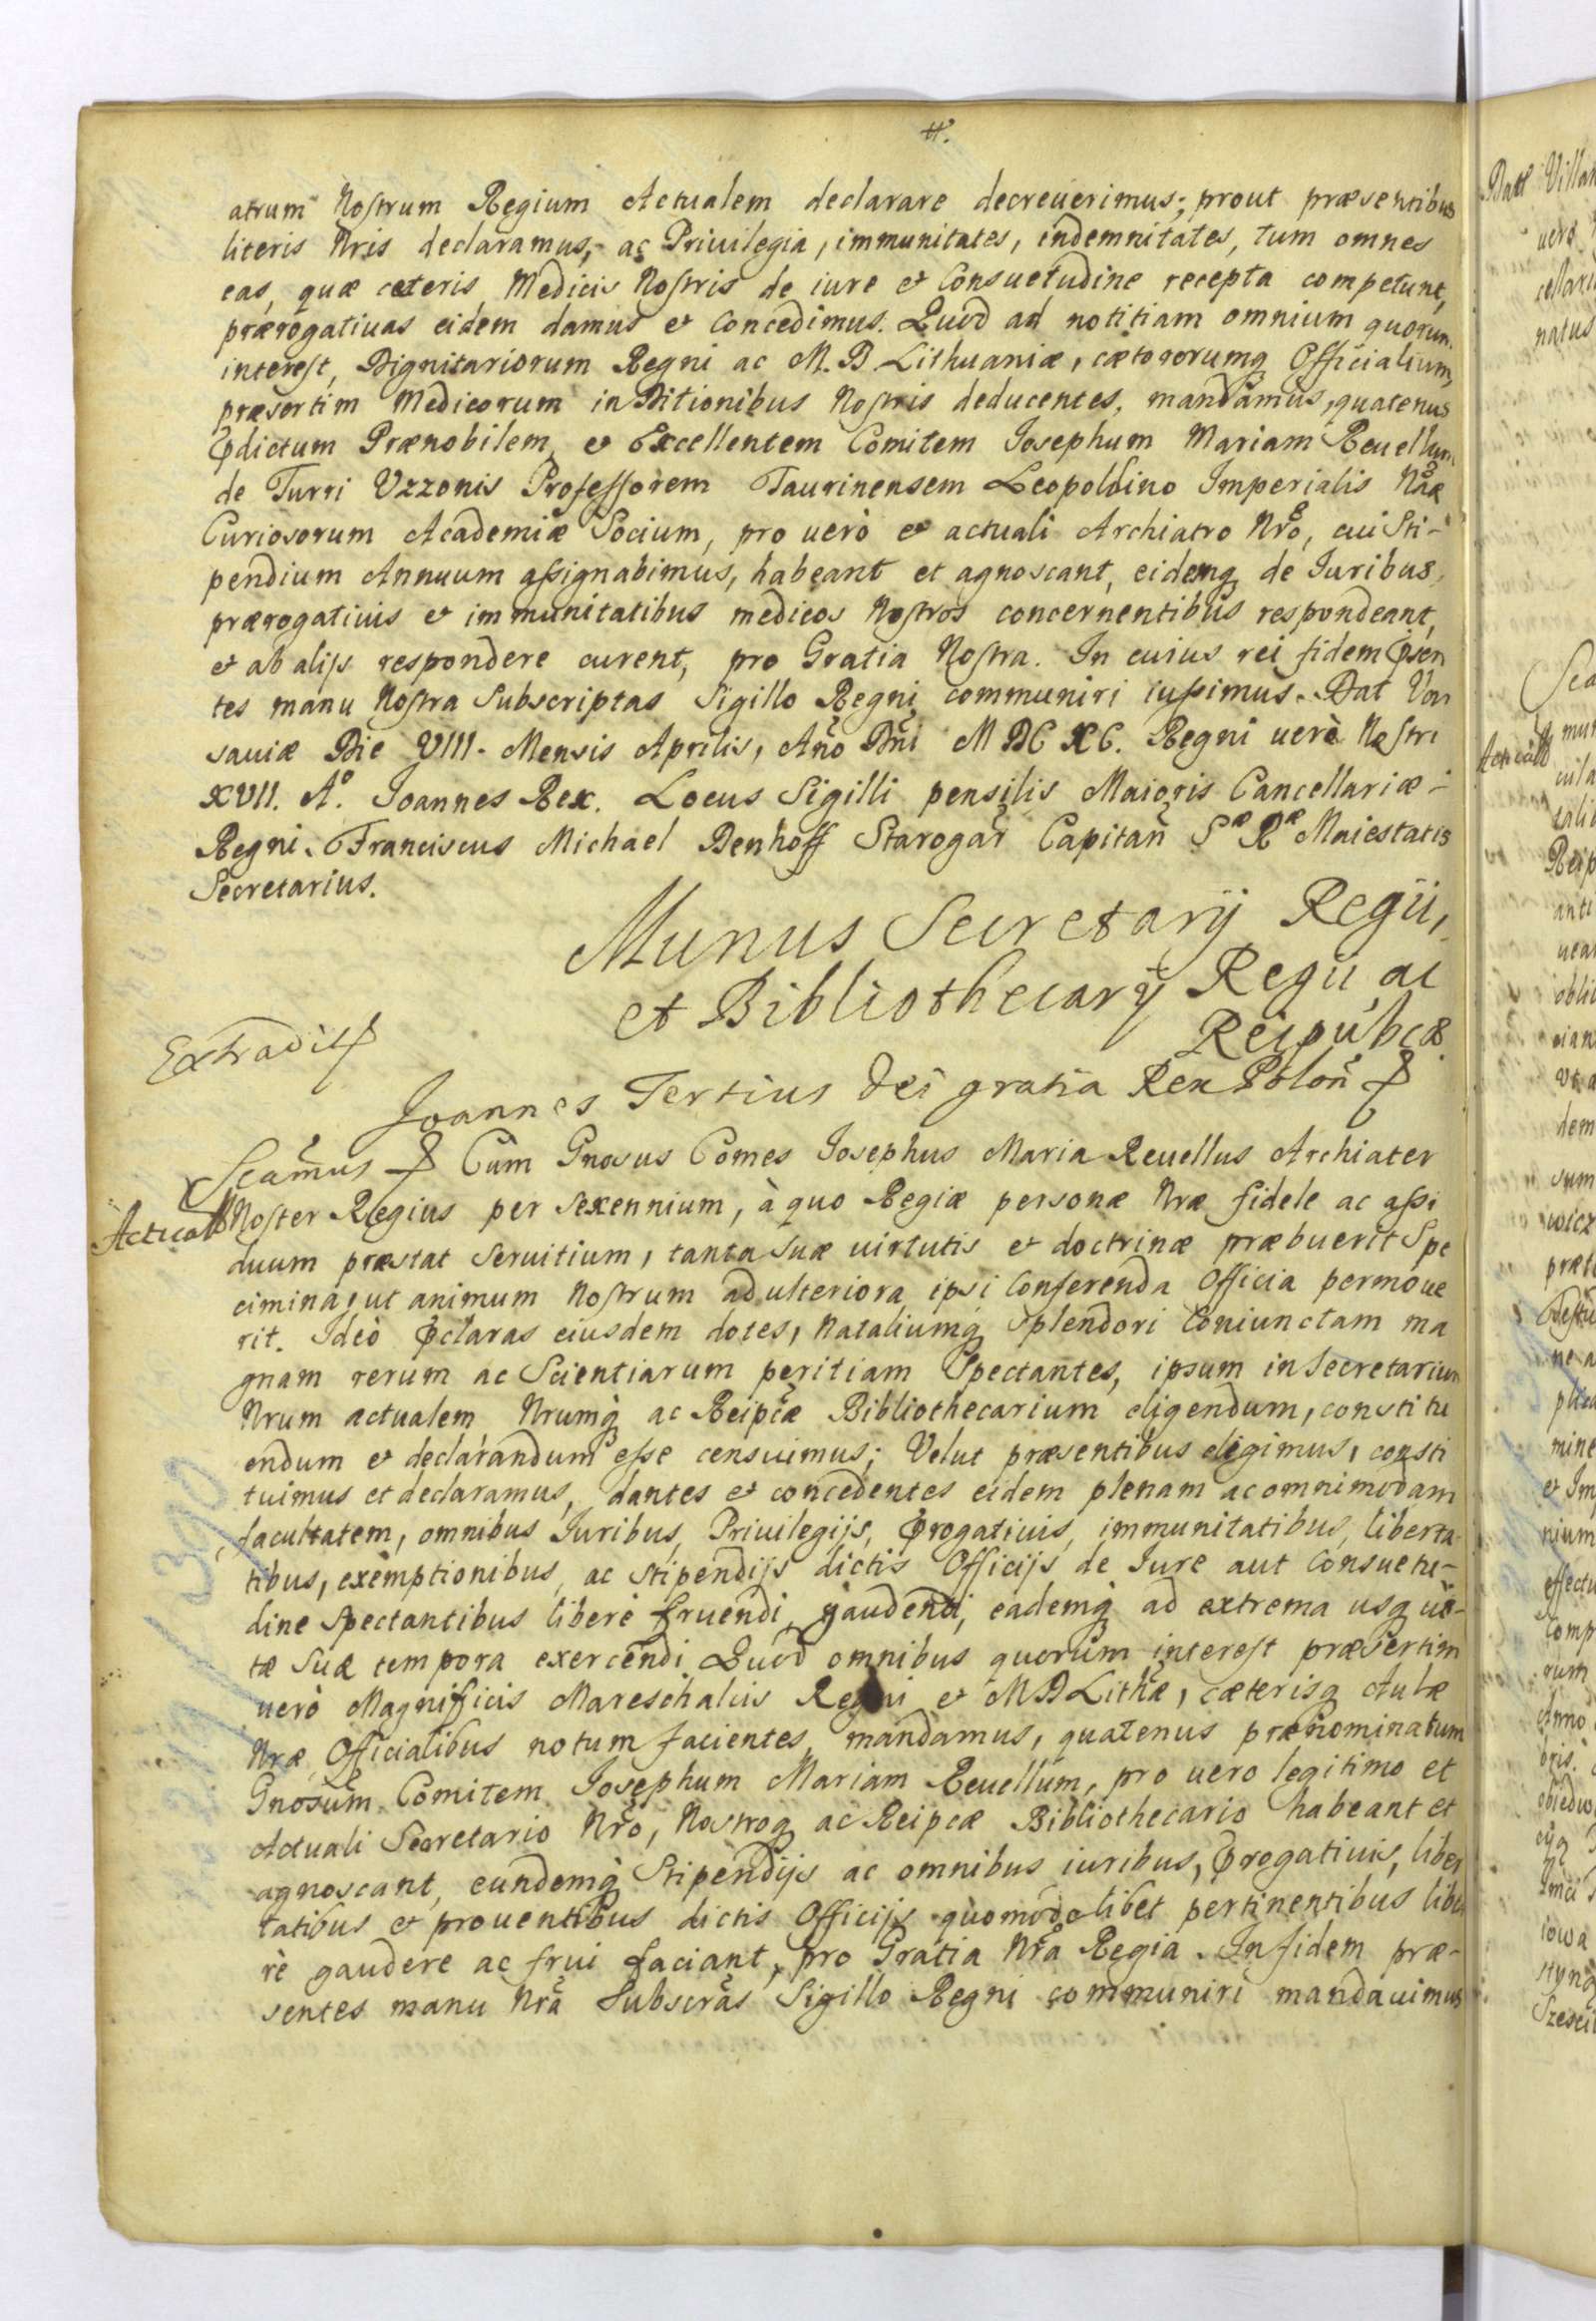 #.
atrum Nostrum Regium Actualem declarare decreuerimus; prout præsentibus
literis Nris declaramus, ac Priuilegia, immunitates, indemnitates, tum omnes
eas, quæ cæteris Medicis Nostris de iure et Consuetudine recepta competunt,
prærogatiuas eidem damus et Concedimus. Quod ad notitiam omnium quorum
interest, Dignitariorum Regni ac M. D. Lithuaniæ, cæterorumq Officialium,
præsertim Medicorum in Ditionibus Nostris deducentes, mandamus, quatenus
Pdictum Prænobilem, et Excellentem Comitem Iosephum Mariam Reuellum
de Turri Uzzonis Professorem Taurinensem Leopoldino Imperialis Naæ
Curiosorum Academiæ Socium, pro uerò et actuali Archiatro Nro, cui Sti-
pendium Annuum assignabimus, habeant et agnoscant, eidemq de Iuribus,
prærogatiuis et immunitatibus medicos Nostros concernentibus respondeant,
et ab alijs respondere curent, pro Gratia Nostra. In cuius rei fidem Psen
tes manu Nostra Subscriptas Sigillo Regni communiri iussimus. Dat Var
sauiæ Die VIII. Mensis Aprilis, Año Dñi MDCXC. Regni uerò Nostri
XVII. Aº. Joannes Rex. Locus Sigilli pensilis Maioris Cancellariæ
Regni. Franciscus Michael Denhoff Starogar Capitañ Sæ Ræ Maiestatis
Secretarius.
Munus Secretarij Regij,
et Bibliothecarij Regij ac
Reipublicæ.
Extradit
Joannes Tertius Dei gratia Rex Poloñ
Scamus Cum Gnosus Comes Iosephus Maria Reuellus Archiater
Acticat
Noster Regius per sexennium, à quo Regiæ personæ Nræ fidele ac assi
duum præstat Seruitium, tanta Suæ uirtutis et doctrinæ præbuerit Spe
cimina, ut animum Nostrum ad ulteriora ipsi Conferenda Officia permoue
rit. Ideò Pclaras eiusdem dotes, Nataliumq Splendori Coniunctam ma
gnam rerum ac Scientiarum peritiam Spectantes, ipsum in Secretarium
Nrum actualem Nrumq ac Reipcæ Bibliothecarium eligendum, constitu
endum et declarandum esse censuimus; Velut præsentibus eligimus, consti
tuimus et declaramus, dantes et concedentes eidem plenam ac omnimodam
facultatem, omnibus Iuribus, Priuilegijs, Progatiuis, immunitatibus, liberta-
tibus, exemptionibus, ac Stipendijs dictis Officijs de Iure aut Consuetu-
dine Spectantibus liberè fruendi, gaudendi, eademq ad extrema usq ui-
tæ Suæ tempora exercendi Quod omnibus quorum interest præsertim
uerò Magnificis Mareschalcis Regni et M D Lithæ, cæterisq Aulæ
Nræ Officialibus notum facientes, mandamus, quatenus prænominatum
Gnosum Comitem Iosephum Mariam Reuellum, pro uero legitimo et
Actuali Secretario Nro, Nostroq ac Reipcæ Bibliothecario habeant et
agnoscant, eundemq Stipendijs ac omnibus iuribus, Progatiuis, liber
tatibus et prouentibus dictis Officijs quomodolibet pertinentibus libe
rè gaudere ac frui faciant, pro Gratia Nra Regia. In fidem præ-
sentes manu Nrã Subscrãs Sigillo Regni communiri mandauimus